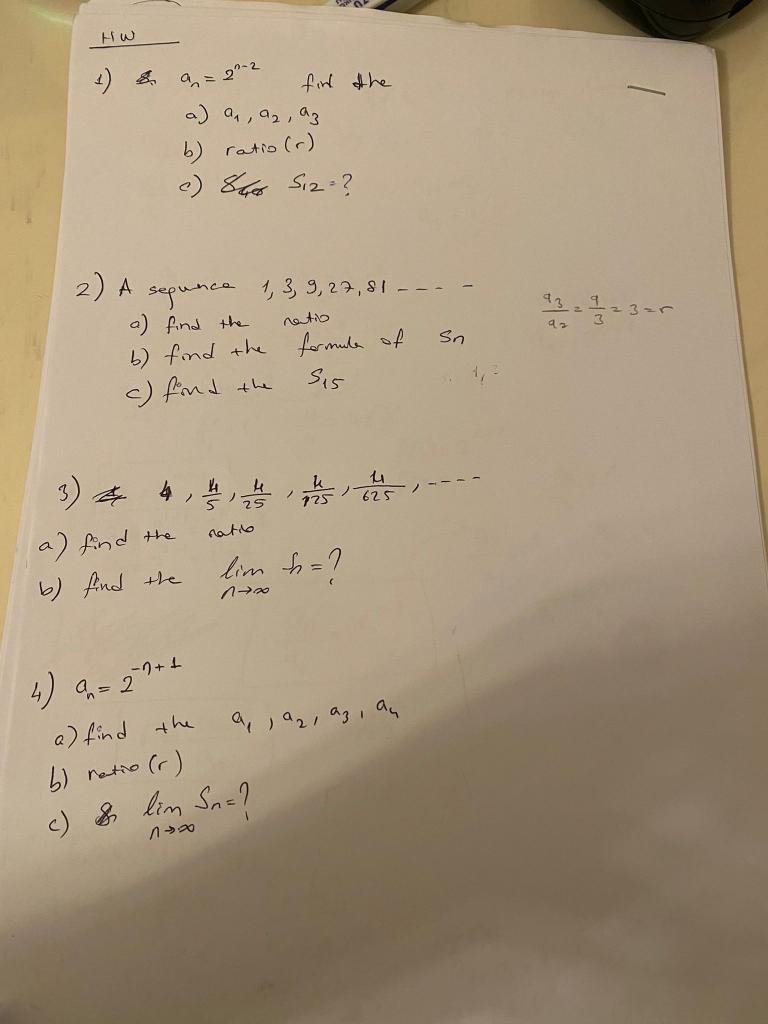 HW
1) aₙ = 2ⁿ⁻² find the
a) a₁, a₂, a₃
b) ratio (r)
c) S₁₂ = ?
2) A sequnce 1, 3, 9, 27, 81 - - - - -
a) find the ratio
b) find the formula of Sn
c) find the S₁₅
a₃/a₂ = 9/3 = 3 = r
3) 4, 4/5, 4/25, 4/125, 4/625, - - - -
a) find the ratio
b) find the lim n→∞ = ?
4) aₙ = 2⁻ⁿ⁺¹
a) find the a₁, a₂, a₃, a₄
b) ratio (r)
c) lim n→∞ Sₙ = ?